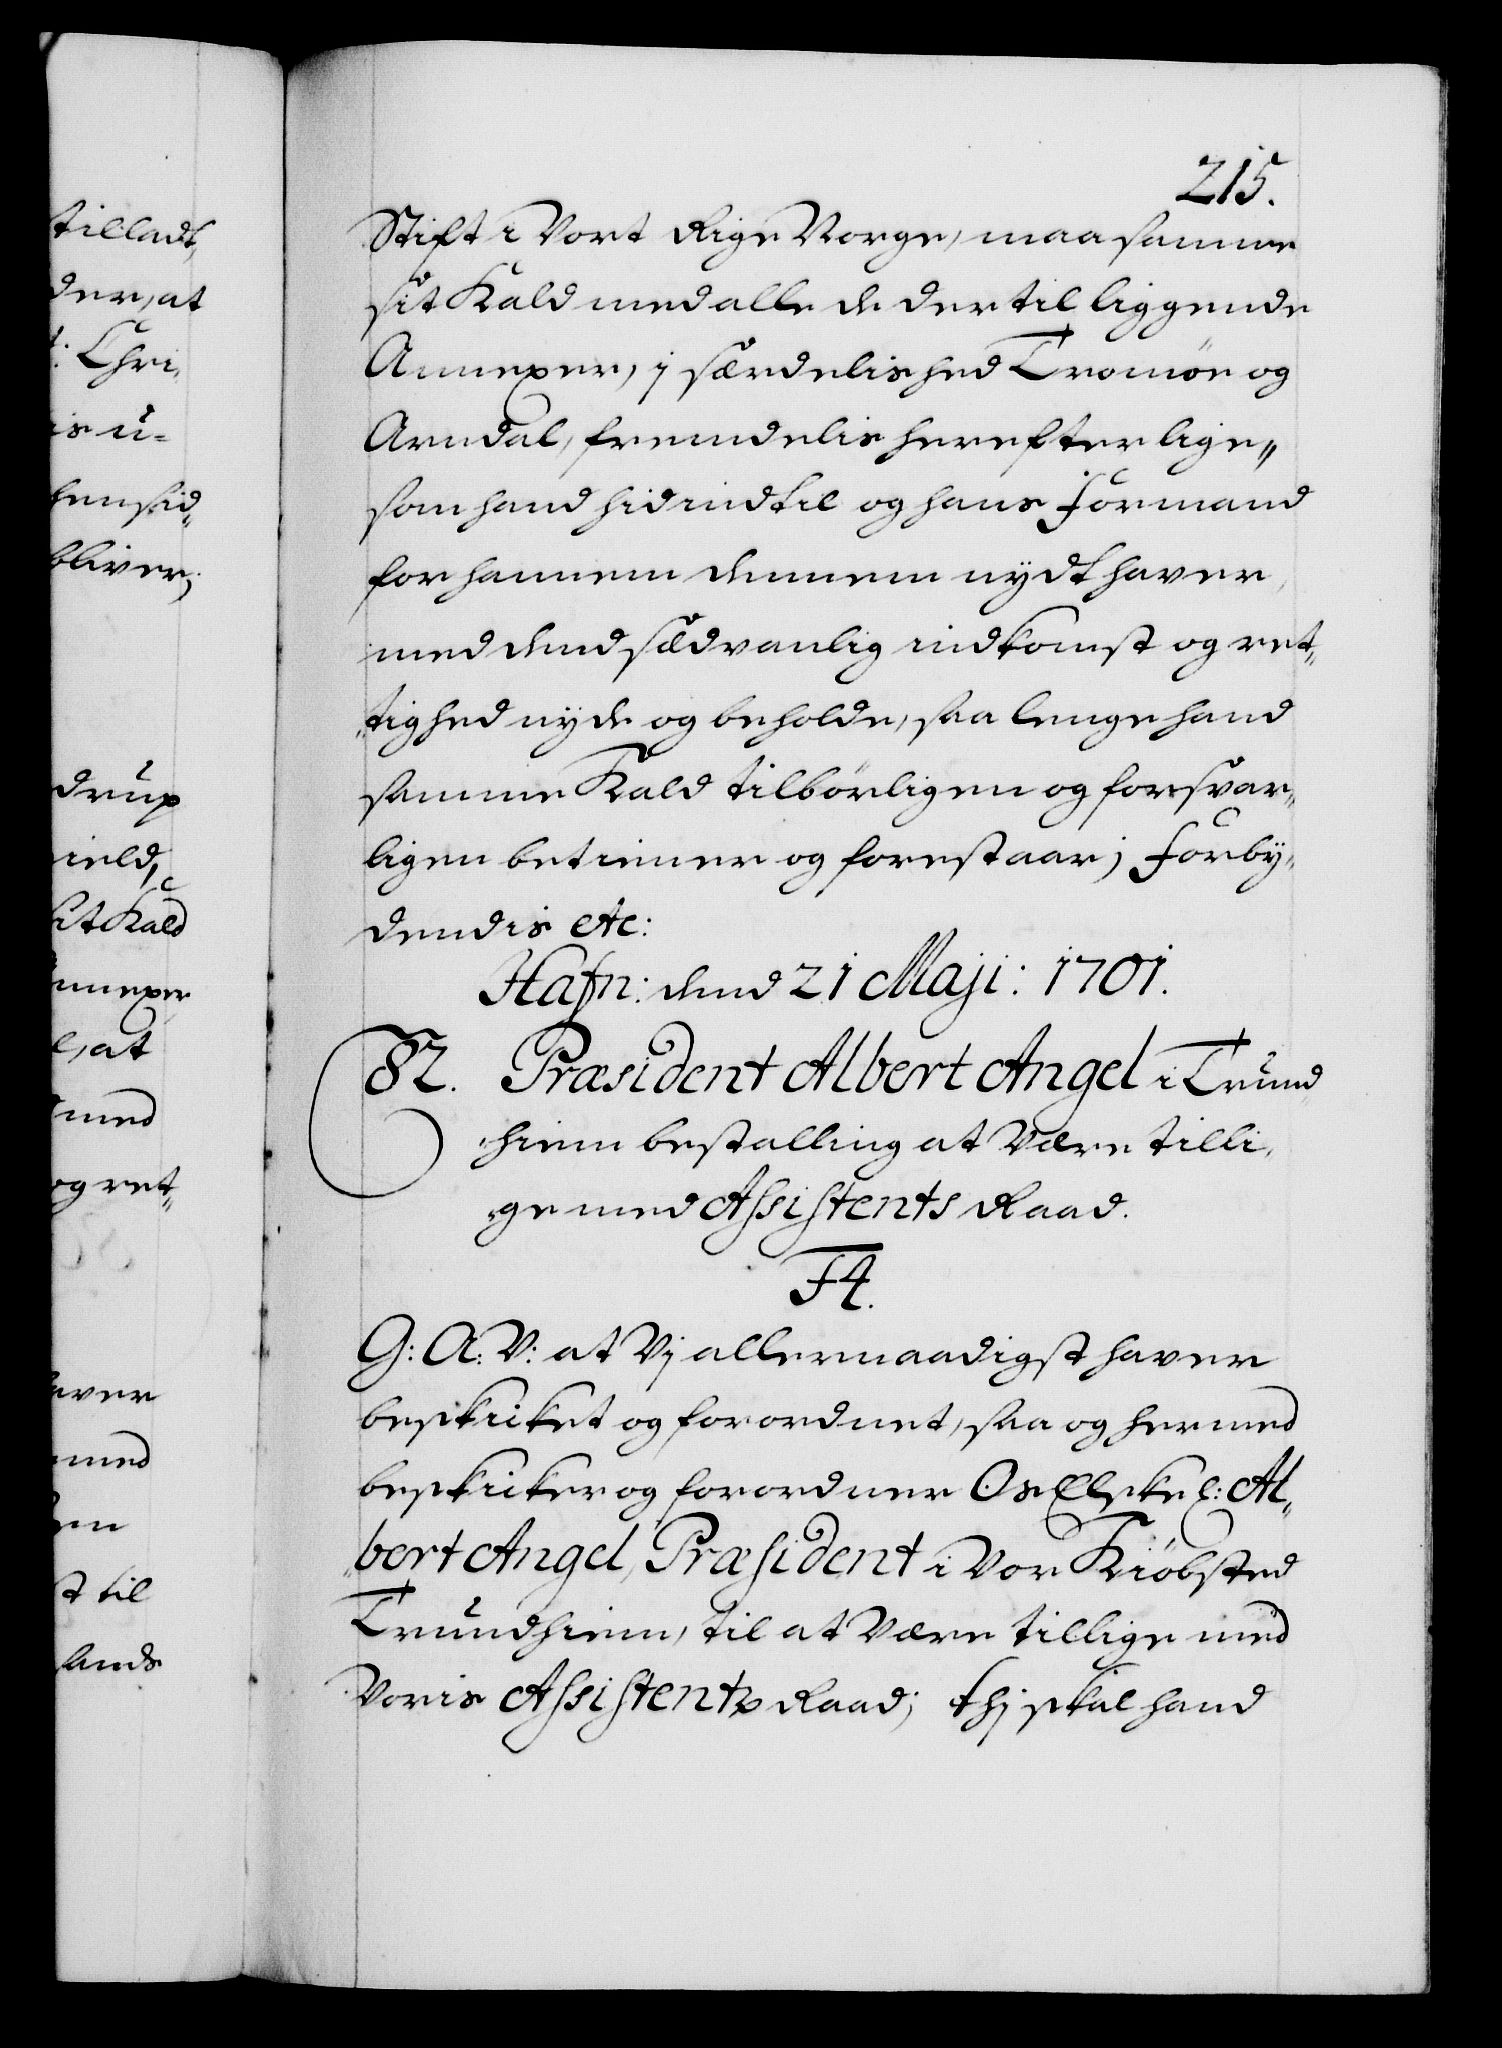 tilladt,
der, at
t: Chri,
is u=
hensid„
bliver;
drup
ield,
sit Kald
nnexer
e, at
med
og ret„
aver
med
en
st til
lands
215.
Stift i Vort Rige Norge, maa samme
sit Kald med alle de dertil liggende
Annexer, j særdelished Tromøe og
Arndal, fremdelis herefter lige„
som hand hidindtil og hans Formand
for hannem dennem nydt haver,
med dend sædvanlig indkomst og ret„
„tighed nyde og beholde, saa lenge hand
samme Kald tilbørligen og forsvar„
ligen betiener og forestaar; Forby„
dendis etc:
Hafn: dend 21 Maji: 1701.
82. Præsident Albert Angel i Trund
hiem bestalling at Være tilli„
„ge med Assistents Raad.
F4.
G: A: V: at Vj allernaadigst haver
beskicket og forordnet, saa og hermed
beskicker og forordner Os Elskel: Al„
„bert Angel, Præsident i Vor Kiøbsted
Trundhiem, til at Være tillige med
Voris Assistentz Raad; thj skal hand